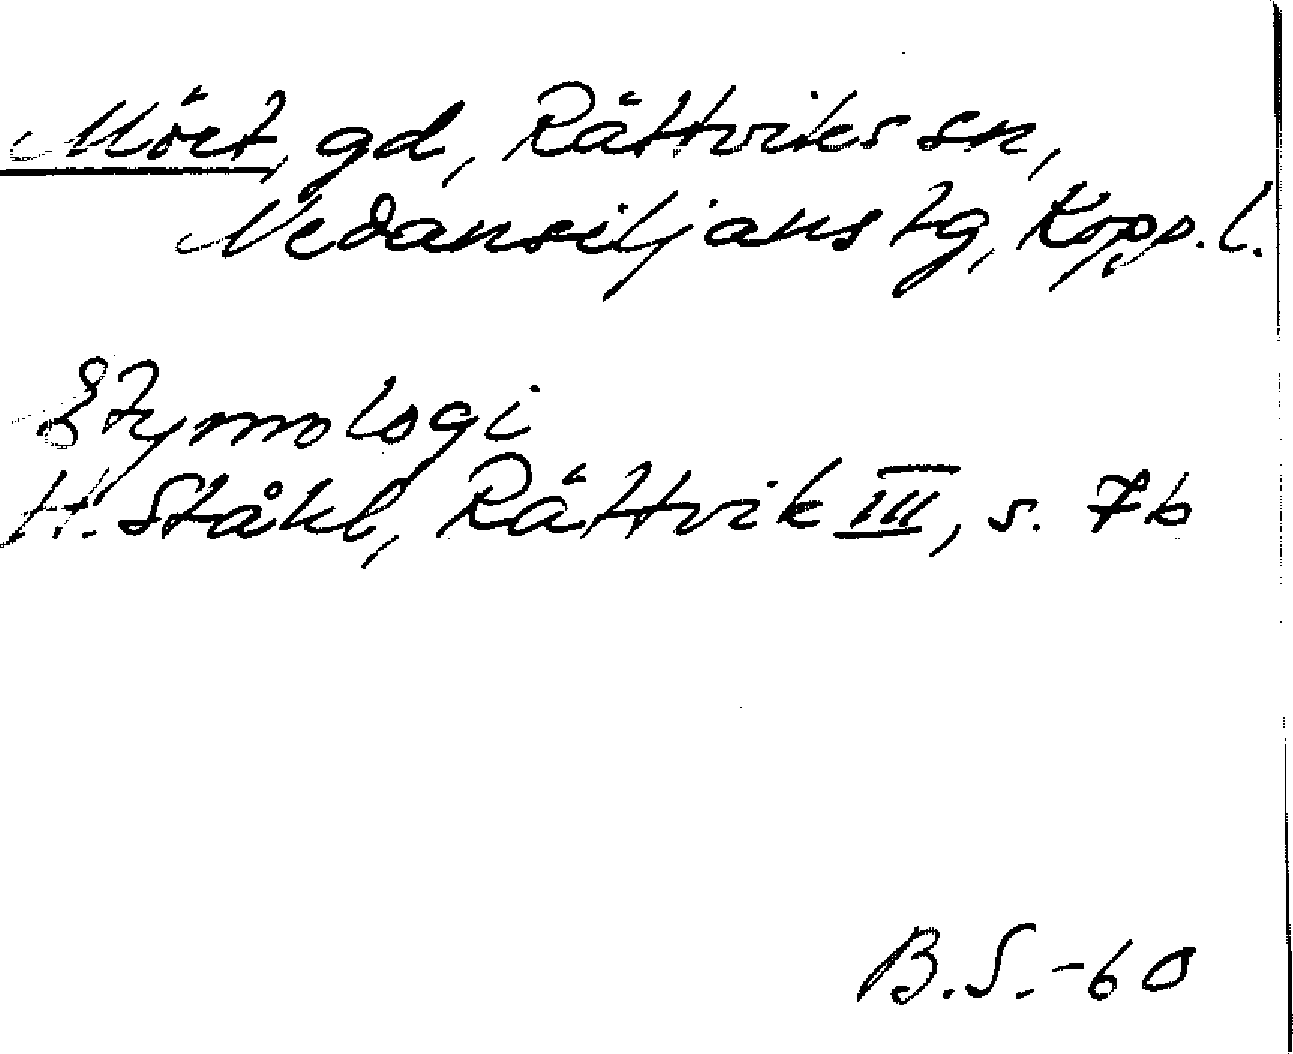 Möret, gd, Rättviks sn,
Nedansiljans tg, Kopp. l.
Etymologi
H. Ståhl, Rättvik III, s. 7b
B.S.-60